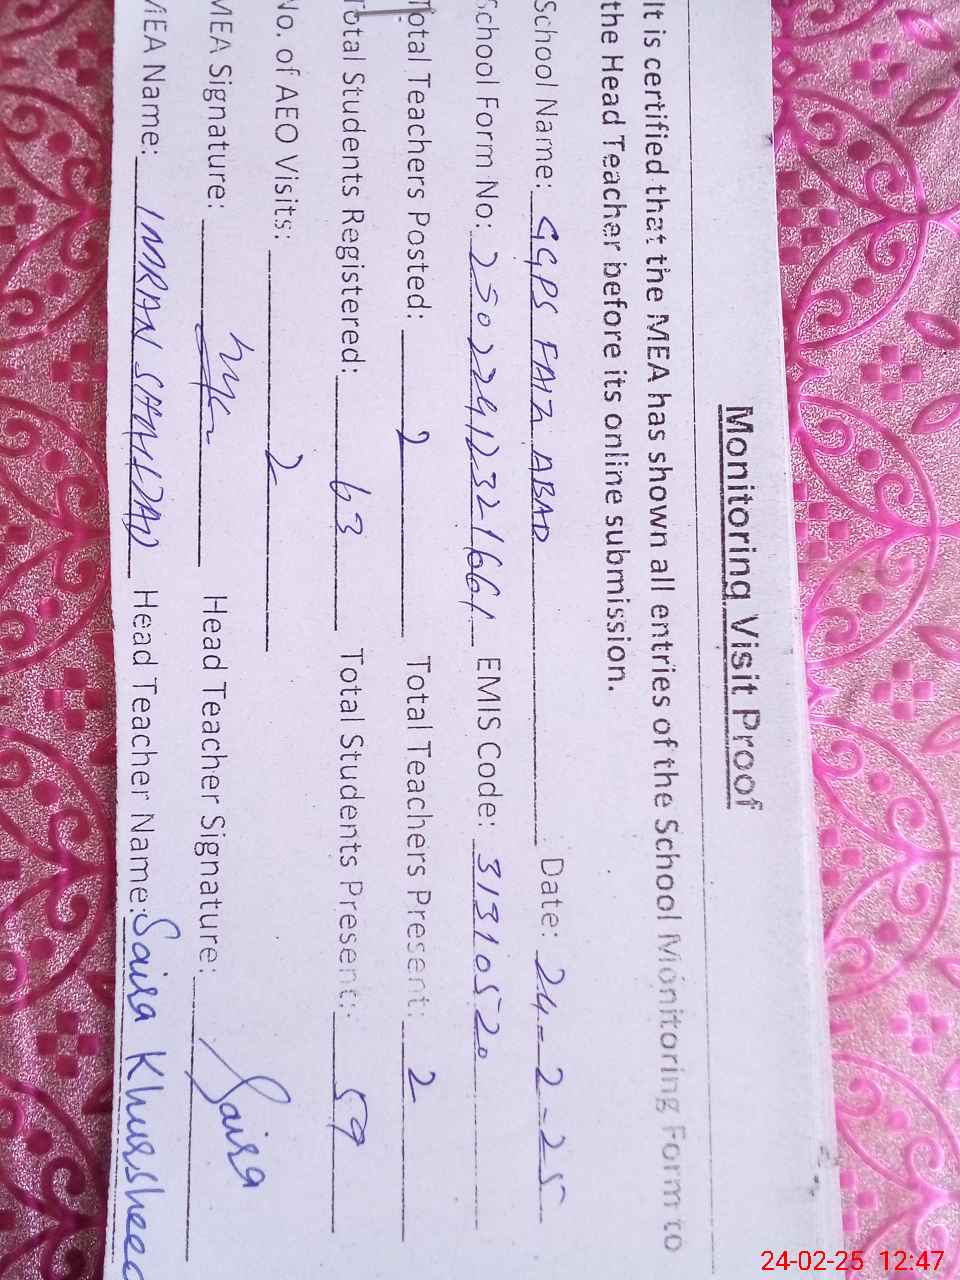 Monitoring Visit Proof
It is certified that the MEA has shown all entries of the School Monitoring Form to
the Head Teacher before its online submission.
School Name: GGPS FAIZ ABAD Date: 24-2-25
School Form No: 25022412321661 EMIS Code: 31310520
Total Teachers Posted: 2 Total Teachers Present: 2
Total Students Registered: 63 Total Students Present: 59
No. of AEO Visits: 2
MEA Signature: Head Teacher Signature: Saira
MEA Name: IMRAN SHAHZAD Head Teacher Name: Saira Khursheed
24-02-25 12:47